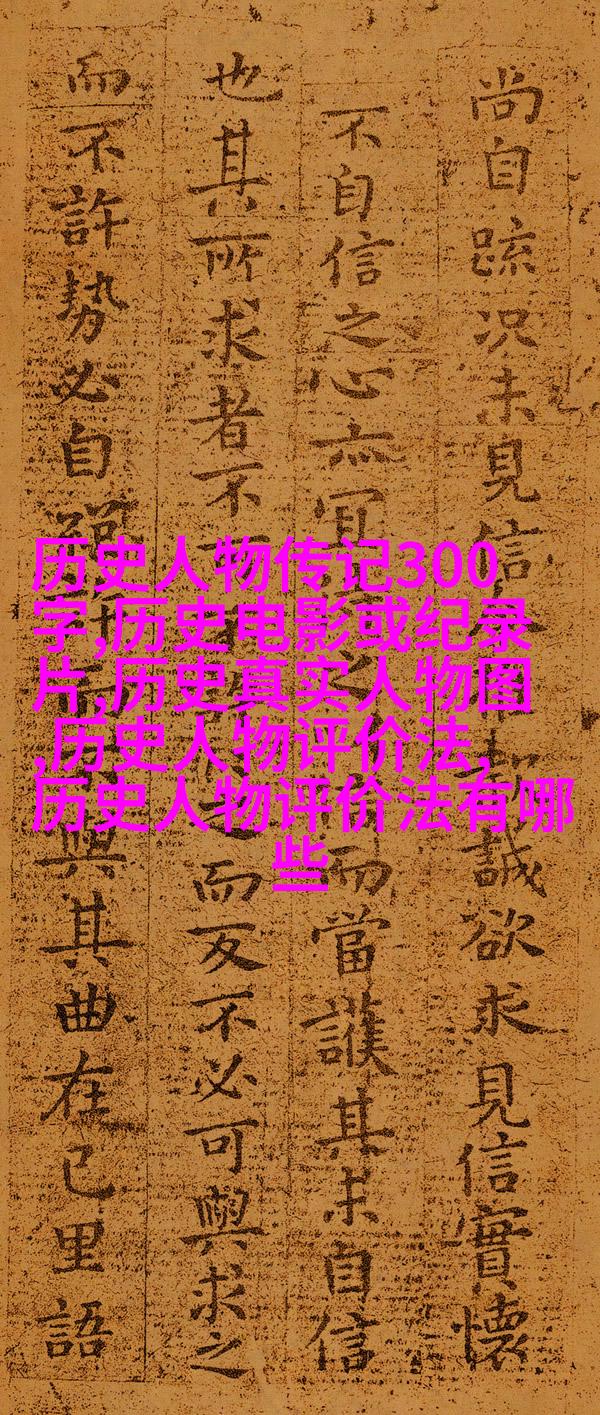 尚自疏况未見信誠欲求見信實懷
不自信之心亦宜而當護其未自信
也其所求者不而反不必可與求之
而不許勢必自與其曲在己里語
历史人物传记300
字,历史电影或纪录
片,历史真实人物图
,历史人物评价法,
历史人物评价法有哪
些